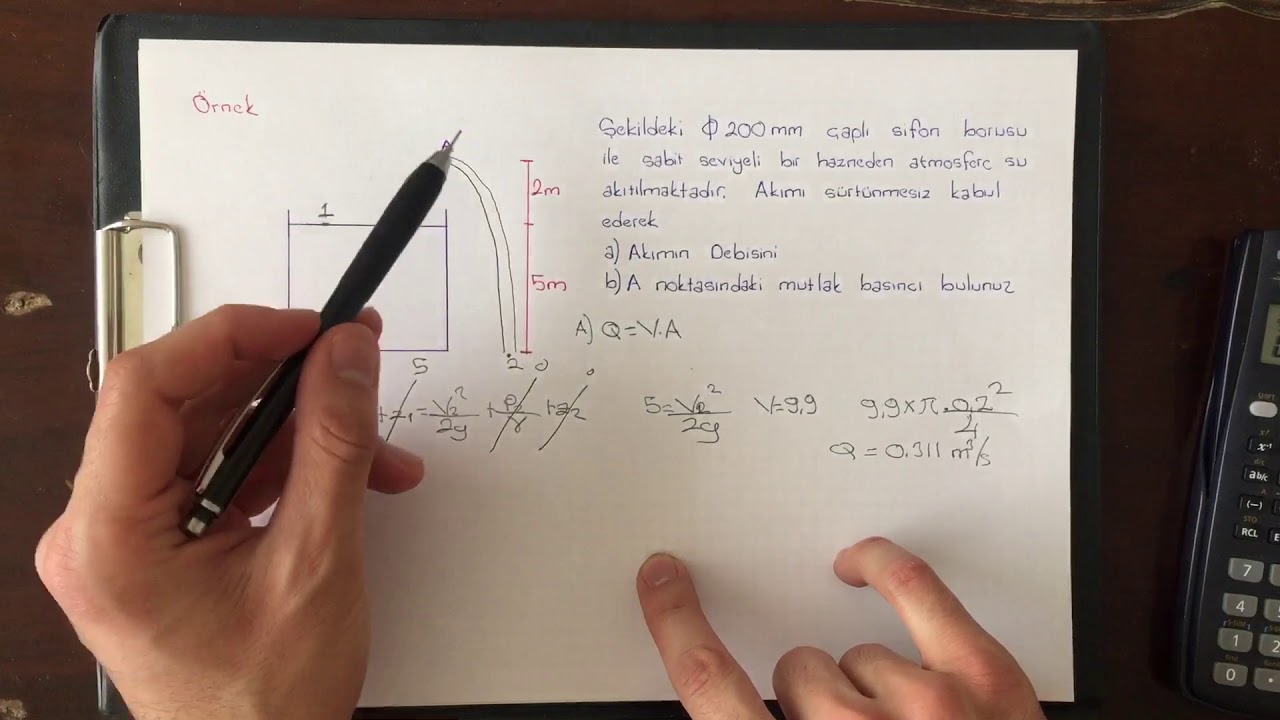 Örnek
Şekildeki ϕ 200mm çaplı sifon borusu
ile sabit seviyeli bir hazneden atmosfere su
akıtılmaktadır. Akımı sürtünmesiz kabul
ederek
a) Akımın Debisini
b) A noktasındaki mutlak basıncı bulunuz
A
1
2m
5m
5
2
0
0
A) Q=V.A
+z₁=V₂²/2g+P₂/γ+z₂
5=V₂²/2g V=9,9 9,9×π.0,2²/4
Q=0.311 m³/s
x⁻¹
ab/c
(-)
STO
RCL
7
4
1
2
0